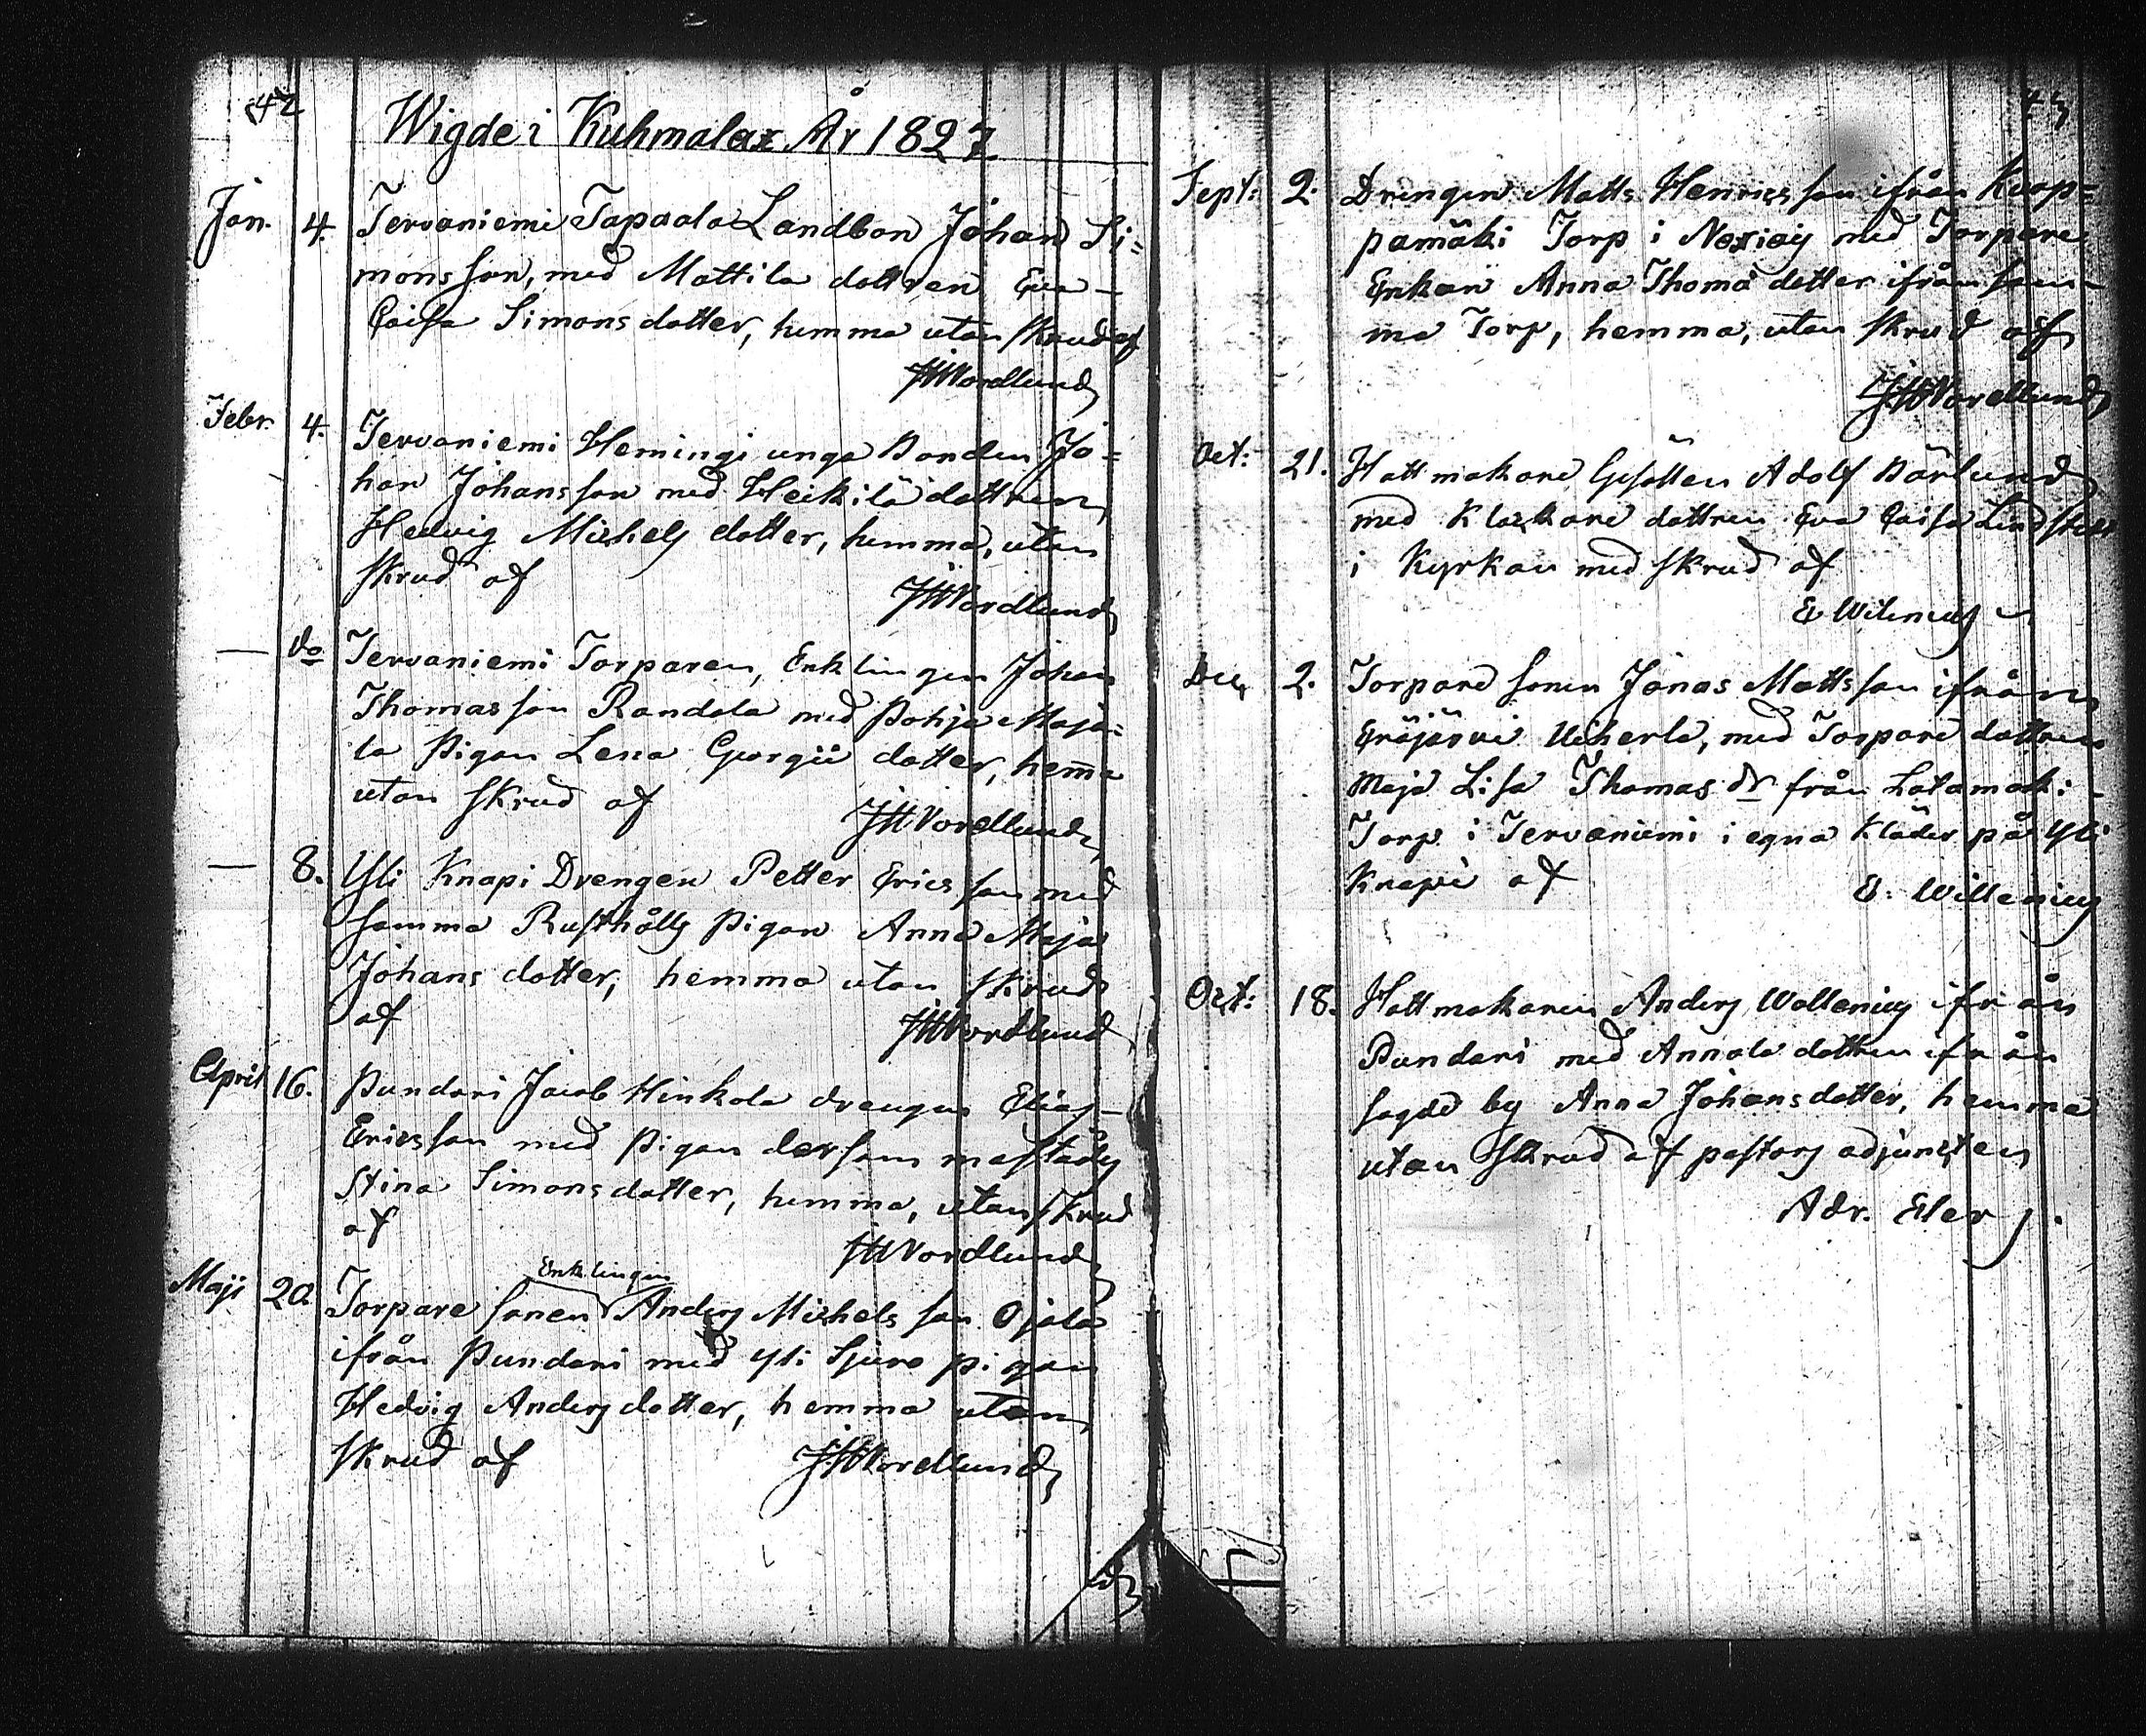 42
Wigde i Kuhmalax År 1827
Jan. 4. Tervaniemi Tapaala Landbon Johan Si=
monsson, med Mattila dottren Eva-
Caisa Simonsdotter, hemma utan skrud af
JHNordlund
Febr. 4. Tervaniemi Hemingi unga Bonden Jo=
han Johansson med Heikilä dottren
Hedvig Michels dotter, hemma, utan
skrud af
JHNordlund
— do Tervaniemi Torparen, Enklingen Johan
Thomasson Randala med Pohja Maja=
la Pigan Lena Georgii dotter, hemma
utan skrud af
JHNordlund
— 8. Yli Knapi Drengen Petter Ericsson med
samma Rusthålls Pigan Anna Maja
Johans dotter, hemma utan skrud
af
JHNordlund
April 16. Pundari Jacob Hinkola drengen Elias
Ericsson med Pigan dersammastäds
Stina Simonsdotter, hemma, utan skrud
af
JHNordlund
Enklingen
Maji 20 Torpare sonen Anders Michelsson Ojala
ifrån Pundari med Yli Sjuro pigan
Hedvig Andersdotter, hemma utan
skrud af
JHNordlund
43
Sept: 2. Drengen Matts Henricsson ifrån Koop=
pamäki Torp i Noxiois med Torpare
Enkan Anna Thoma dotter ifrån sam-
ma Torp, hemma, utan skrud af
JHNordlund
Oct: 21. Hattmakare Gesällen Adolf Bärlund
med Klockare dottren Eva Caisa Lindstedt
i Kyrkan med skrud af
E Wilenius
Dec. 2. Torpare sonen Jonas Mattsson ifrån
Eräjärvi Uiherla, med Torpare dottren
Maja Lisa Thomas dr från Latamaki-
Torp i Tervaniemi i egna kläder på Yli
Knapi af
E. Willenius
Oct: 18. Hattmakaren Anders Wallenius ifrån
Pundari med Annala dottren ifrån
sagde by Anna Johansdotter, hemma
utan skrud af pastors adjuncten
Adr. Eler